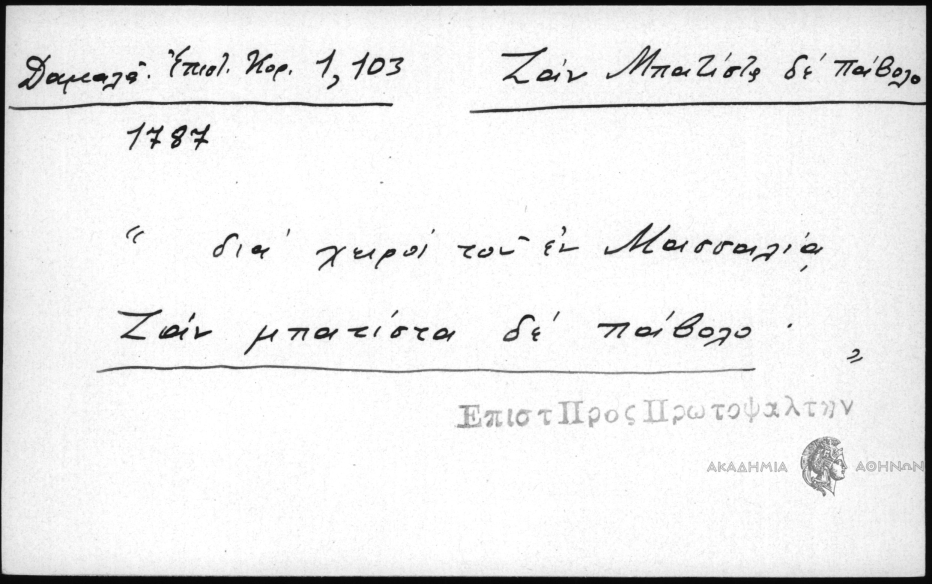 Δαμαλᾶ. Ἐπιστ. Κορ. 1, 103
Ζάν Μπατίστα δέ πάβολο
1787
“ διά χειρός τοῦ ἐν Μασσαλίᾳ
Ζάν μπατίστα δέ πάβολο . „
Επιστ Προς Πρωτοψαλτην
ΑΚΑΔΗΜΙΑ ΑΘΗΝΩΝ